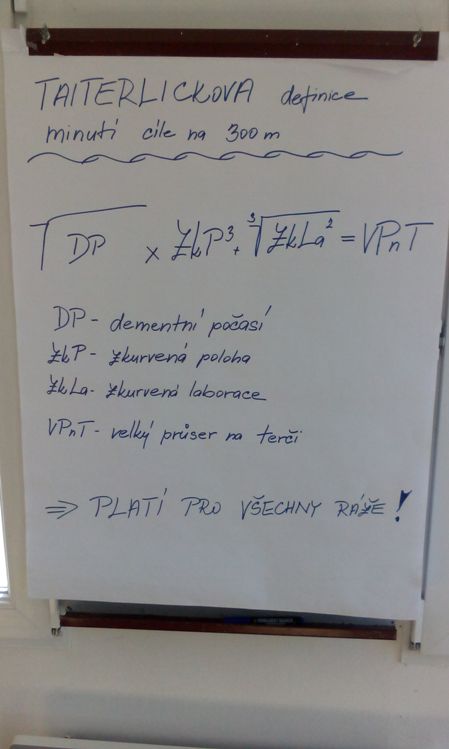 TAITERLICKOVA definice
minutí cíle na 300m
√DP × ZkP³ + ³√ZkLa² = VPnT
DP - dementní počasí
ZkP - zkurvená poloha
ZkLa - zkurvená laborace
VPnT - velký průser na terči
⇒ PLATÍ PRO VŠECHNY RÁŽE!